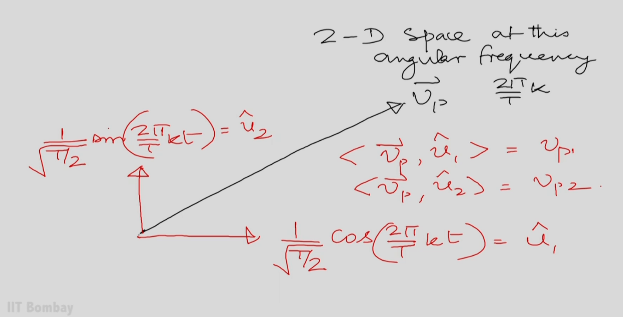 2-D Space at this
angular frequency
2π/T k
v⃗p
1/√(T/2) sin(2π/T kt) = û2
< v⃗p, û1 > = vp1
< v⃗p, û2 > = vp2.
1/√(T/2) cos(2π/T kt) = û1
IIT Bombay